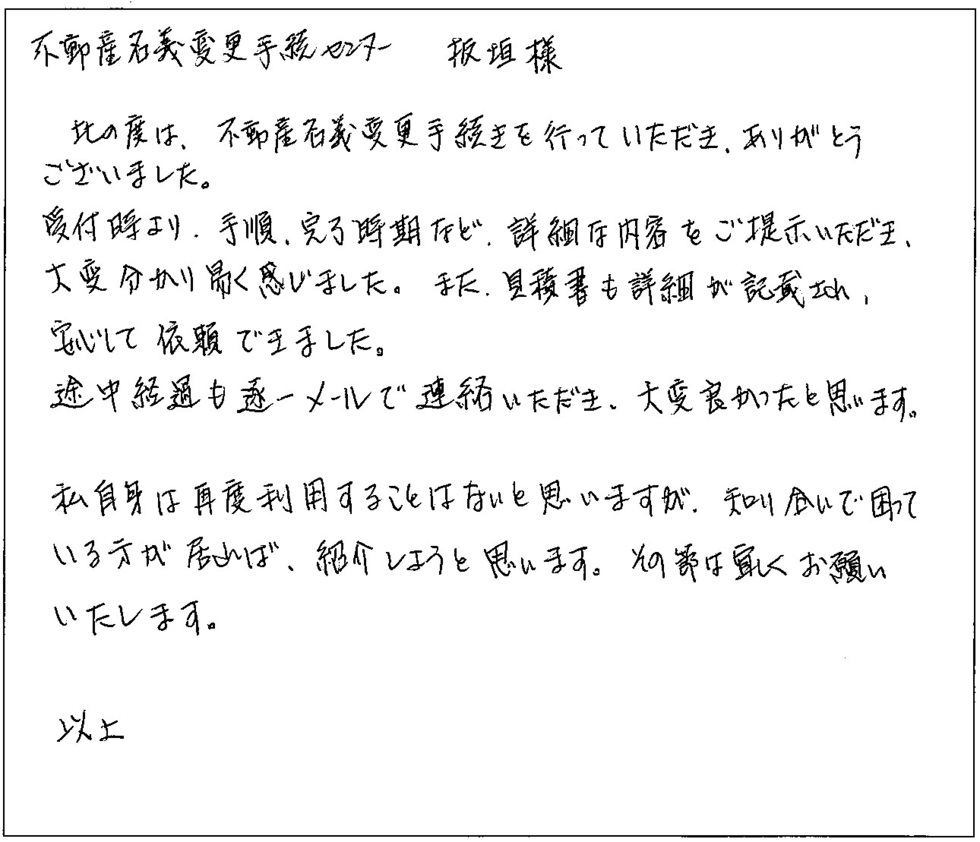 不動産名義変更手続センター 板垣様
此の度は、不動産名義変更手続きを行っていただき、ありがとう
ございました。
受付時より、手順、完了時期など、詳細な内容をご提示いただき、
大変分かり易く感じました。また、見積書も詳細が記載され、
安心して依頼できました。
途中経過も逐一メールで連絡いただき、大変良かったと思います。
私自身は再度利用することはないと思いますが、知り合いで困って
いる方が居れば、紹介しようと思います。その節は宜しくお願い
いたします。
以上